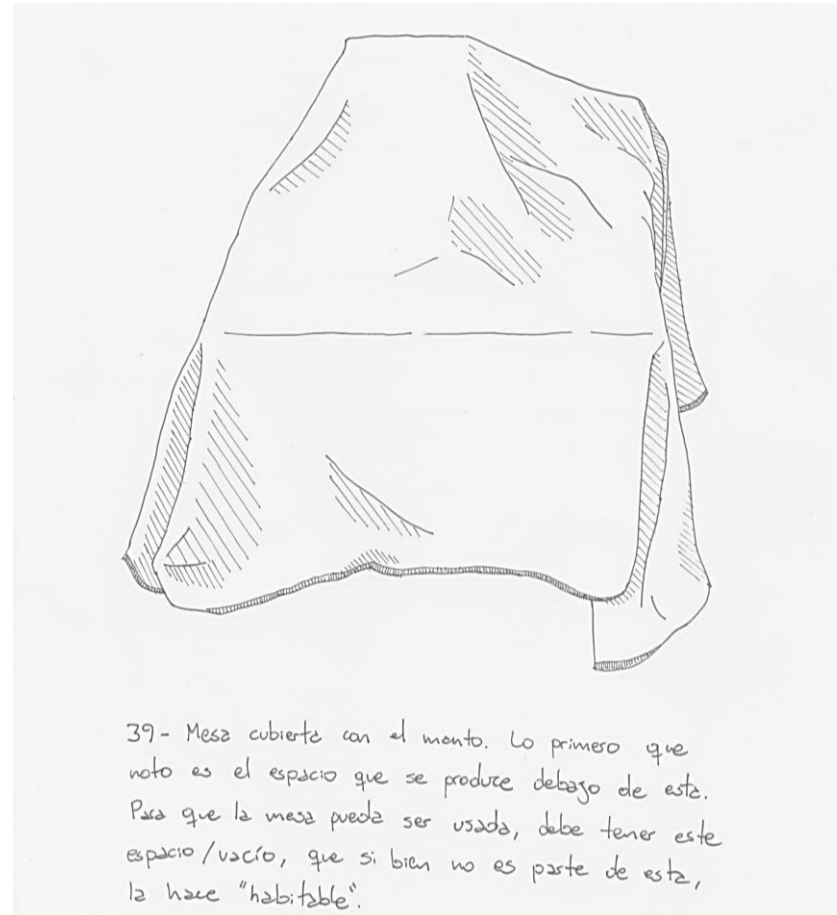 39- Mesa cubierta con el manto. Lo primero que
noto es el espacio que se produce debajo de esta.
Para que la mesa pueda ser usada, debe tener este
espacio/vacío, que si bien no es parte de esta,
la hace "habitable".